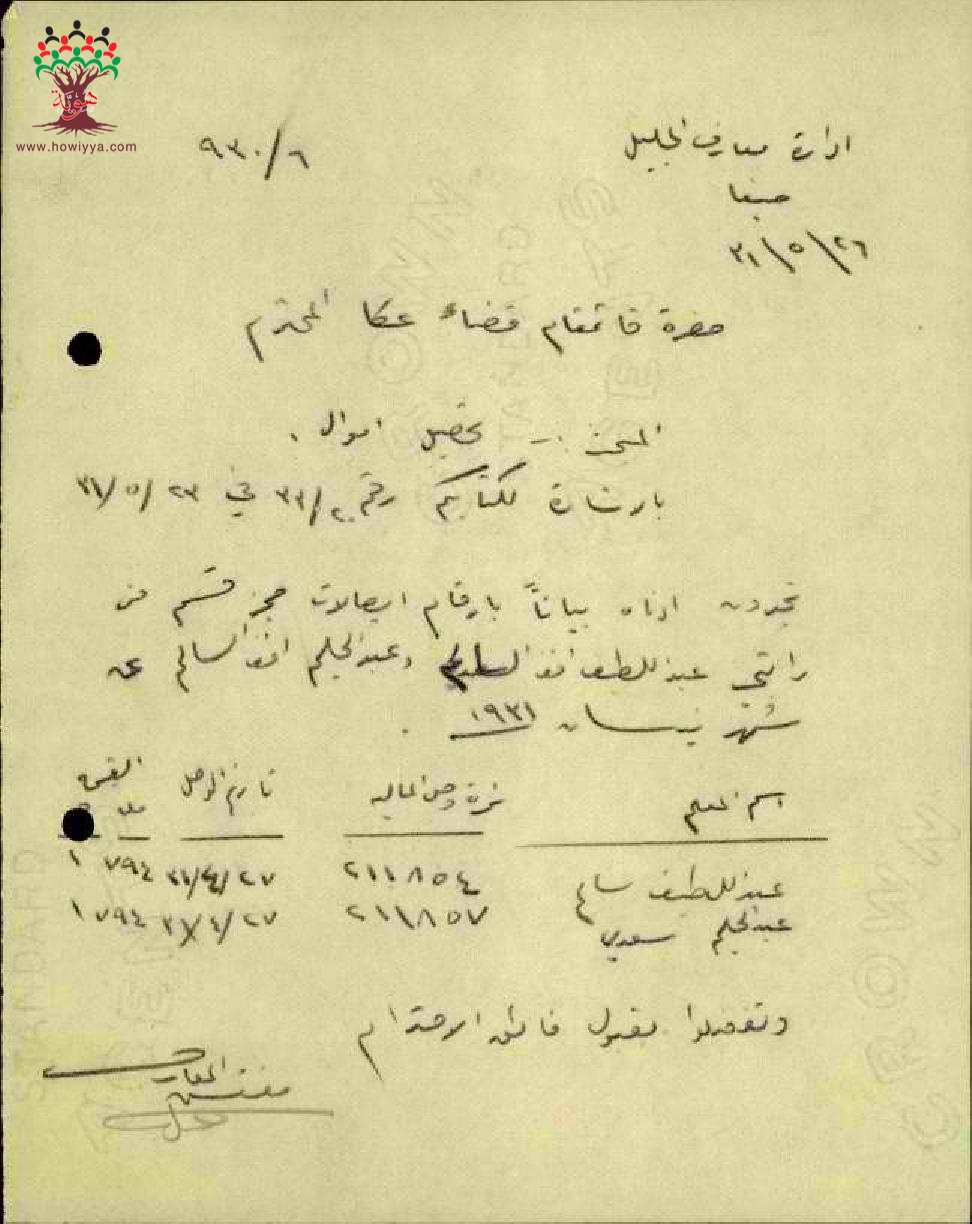 هوية
www.howiyya.com
ادارة معارف الجليل
٩٣٠/٦
حيفا
٣١/٥/٢٦
حضرة قائمقام قضاء عكا المحترم
المبحث :- تحصيل اموال .
بالاشارة لكتابكم رقم ٣٣/٢٠ في ٢٣/٥/٣١
تجدون ادناه بياناً بارقام ايصالات حجز قسم من
راتبي عبد اللطيف افندي السالم وعبد الحليم افندي السالم عن
شهر نيسان ١٩٣١ .
اسم المعلم نمرة وصل المالية تاريخ الوصل القيمة
عبد اللطيف سالم ٢١١٨٥٤ ٣١/٤/٢٧ ٧٩٤ ١
عبد الحليم سعدي ٢١١٨٥٧ ٣١/٤/٢٧ ٧٩٤ ١
وتفضلوا بقبول فائق الاحترام
مفتش المعارف
STANDARD